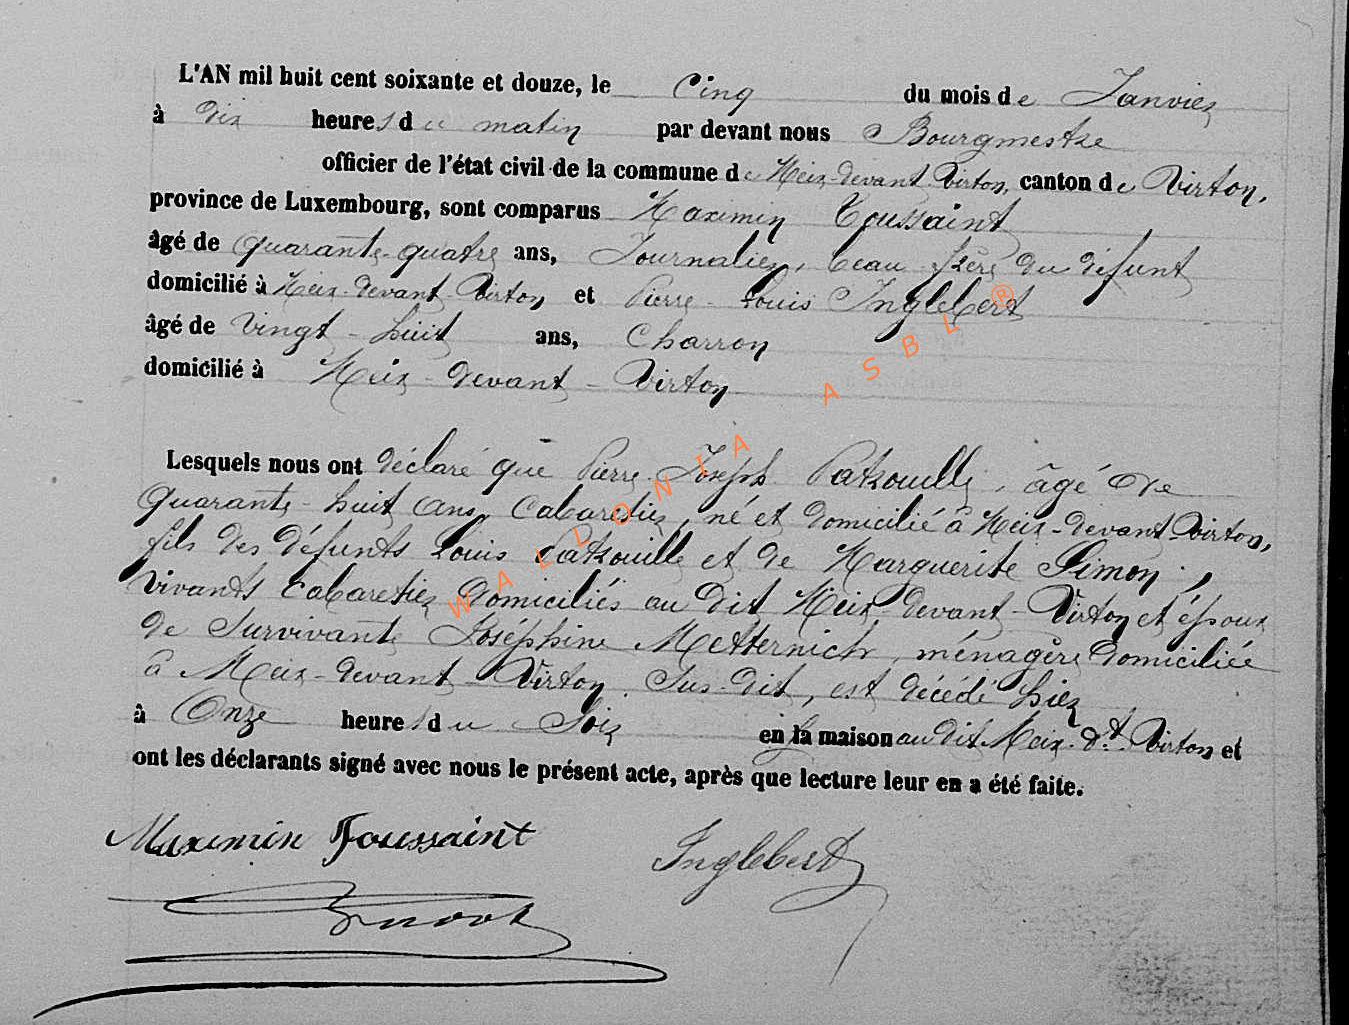 L'AN mil huit cent soixante et douze, le Cinq du mois de Janvier
à dix heures du matin par devant nous Bourgmestre
officier de l'état civil de la commune de Meix-devant-Virton, canton de Virton,
province de Luxembourg, sont comparus Maximin Toussaint
âgé de quarante-quatre ans, Journalier, beau frère du défunt
domicilié à Meix-devant-Virton et Pierre-Louis Inglebert
âgé de vingt-huit ans, Charron
domicilié à Meix-devant-Virton
Lesquels nous ont déclaré que Pierre-Joseph Patrouille, âgé de
quarante-huit ans, Cabaretier, né et domicilié à Meix-devant-Virton,
fils des défunts Louis Patrouille et de Marguerite Simon,
vivants cabaretiers domiciliés au dit Meix-devant-Virton et époux
de survivante Joséphine Metternich, ménagère domiciliée
à Meix-devant-Virton, sus-dit, est décédé hier
à Onze heures du soir en la maison au dit Meix-dt-Virton et
ont les déclarants signé avec nous le présent acte, après que lecture leur en a été faite.
Maximin Toussaint Inglebert
WALLONIA ASBL ®